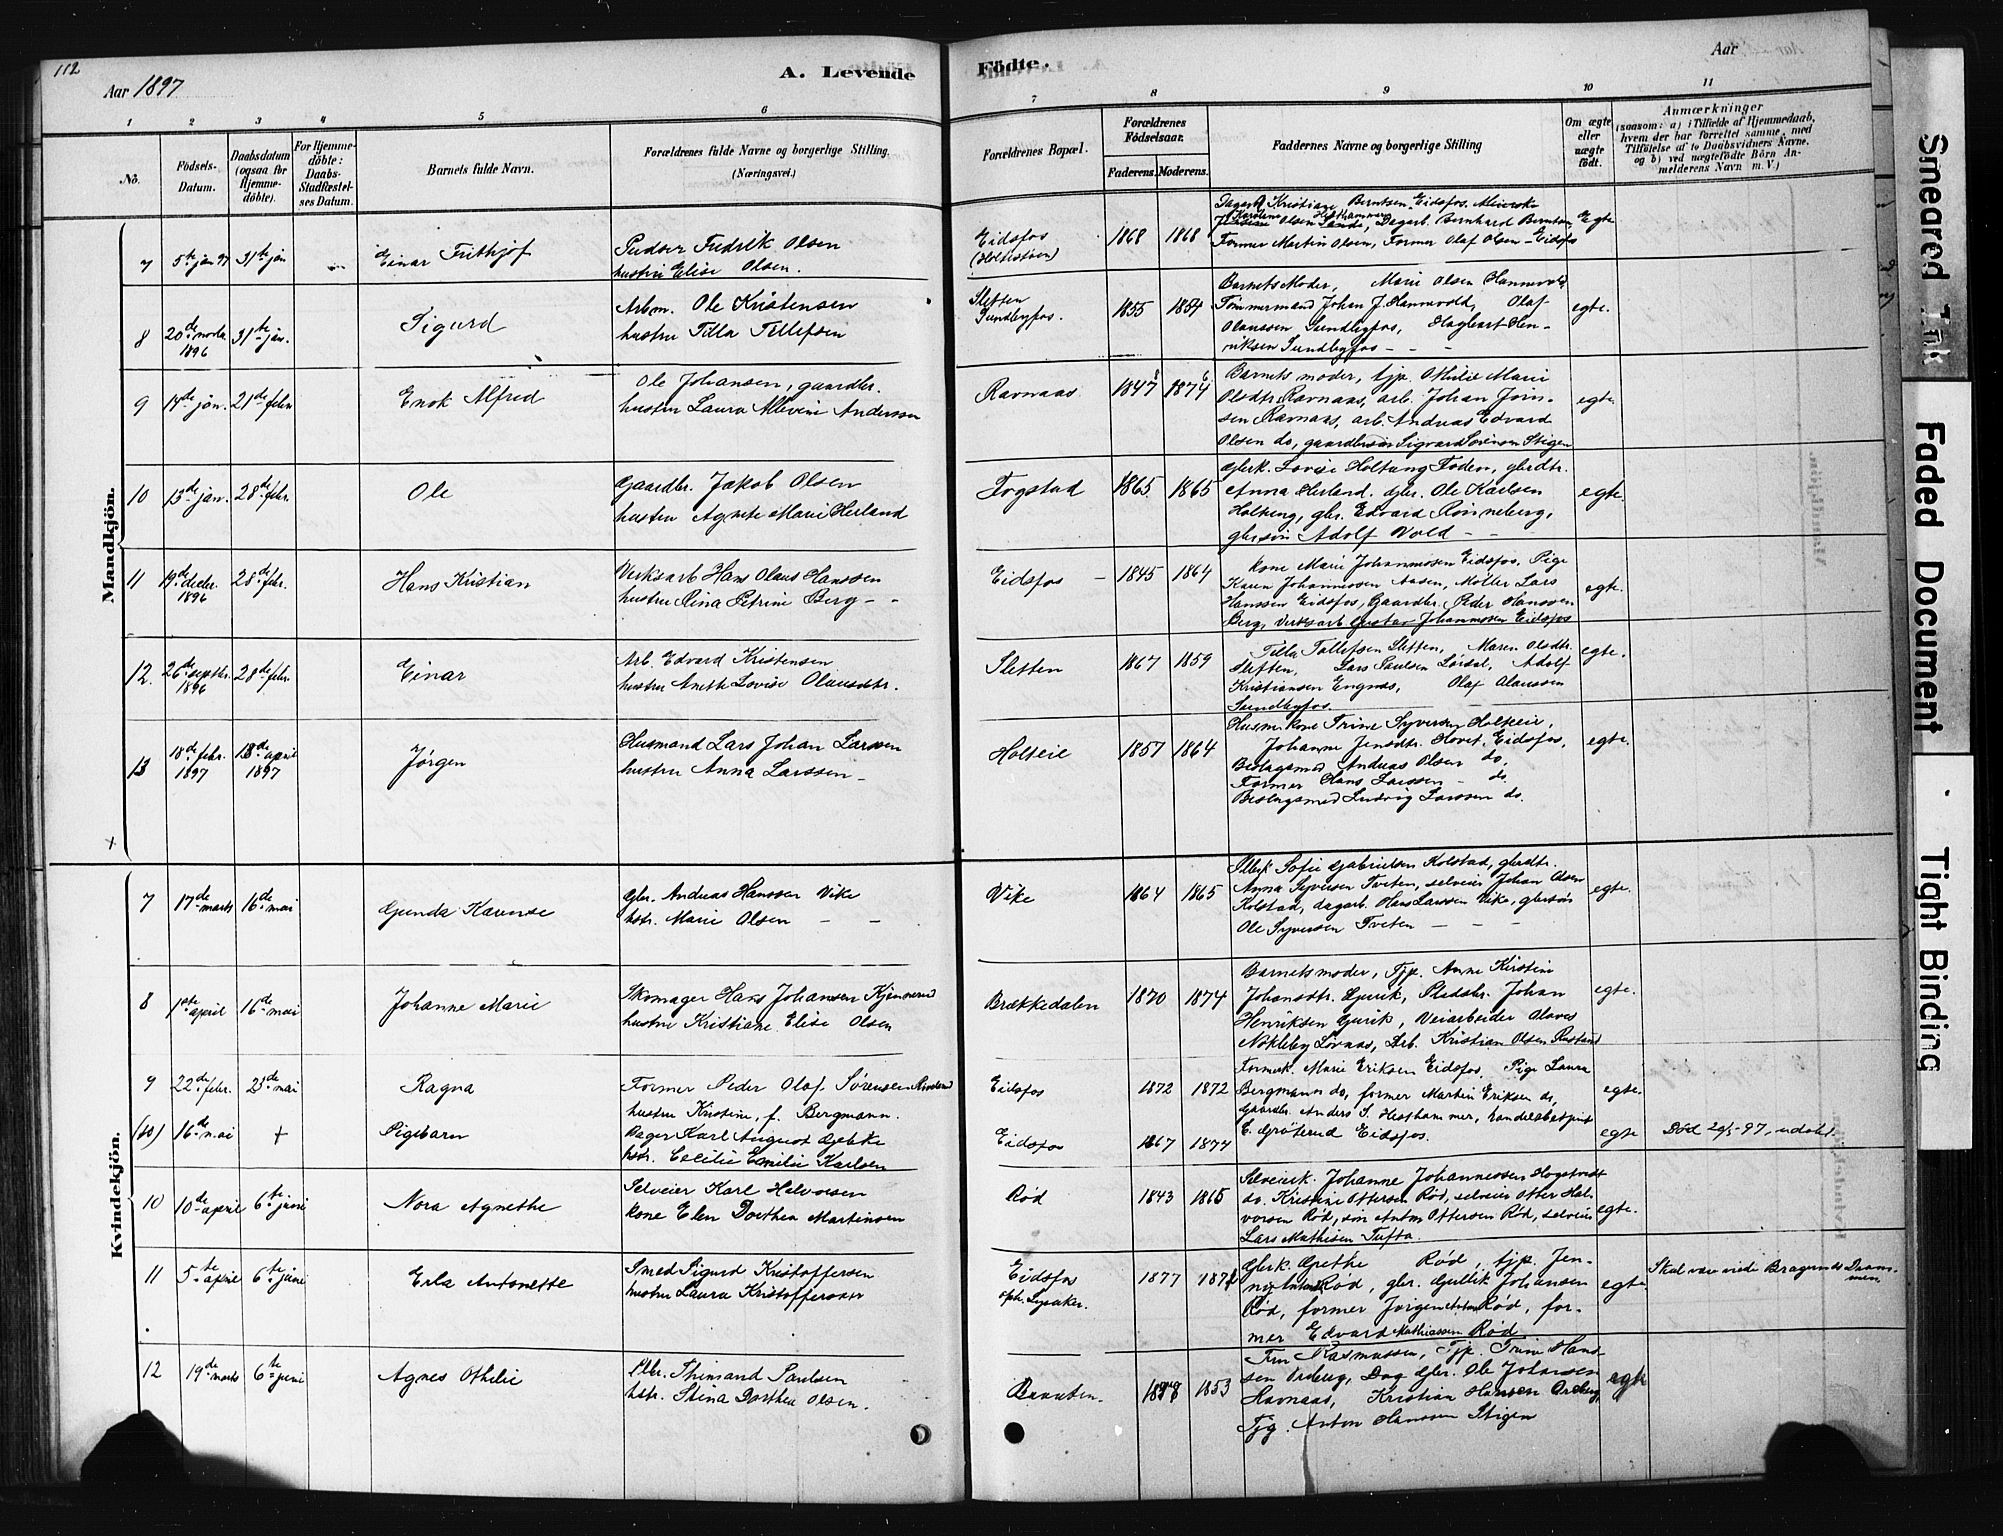 112
Aar 1897
A. Levende
Födte.
Aar
1
2
3
4
5
6
7
8
9
10
11
No.
Födsels-
Datum.
Daabsdatum
(ogsaa for
Hjemme-
döbte).
For Hjemme-
döbte:
Daabs-
Stadfæstel-
ses Datum.
Barnets fulde Navn.
Forældrenes fulde Navne og borgerlige Stilling.
(Næringsvei.)
Forældrenes Bopæl.
Forældrenes
Födselsaar.
Faderens.
Moderens.
Faddernes Navne og borgerlige Stilling
Om ægte
eller
uægte
födt.
Anmærkninger
(saasom: a) i Tilfælde af Hjemmedaab,
hvem der har forrettet samme, med
Tilföielse af to Daabsvidners Navne,
og b) ved uægtefödte Börn An-
melderens Navn m. V.)
Mandkjön.
7
5te jan 97
31te jan
Einar Frithjof
Pudser Fredrik Olsen
hustru Elise Olsen.
Eidsfos
1868
1868
Kristiane Berntsen Eidsfos
Olsen Sande, Dagarb. Bernhard Berntsen
Former Martin Olsen, Former Olaf Olsen - Eidsfos
Egte
8
20de novbr.
1896
31te jan.
Sigurd
Arbm. Ole Kristensen
hustru Tilla Tellefsen
Sletten
Sundbyfos.
1855
1859
Barnets Moder, Marie Olsen Hannevold
Tømmermand Johan J. Hannevold, Olaf
Olaussen Sundbyfos, Hagbart Hen-
riksen Sundbyfos - - -
egte.
9
14de jan.
21de febr
Enok Alfred
Ole Johansen, gaardbr.
hustru Laura Allevine Andersen
Ravnaas
1847
1874
Barnets moder, tjp. Othilie Marie
Olsdtr. Ravnaas, arb. Johan Jørn-
sen Ravnaas, arb. Andreas Edvard
Olsen do, gaardbrsøn Sigvard Sørensen Stigen
egte.
10
13de jan.
28de febr.
Ole
Gaardbr. Jakob Olsen
hustru Agnete Marie Herland
Fogstad
1865
1865
Gbrk. Lovise Holtung Foden, gbrdtr.
Anna Herland. Gbr. Ole Karlsen
Holtung, gbr. Edvard Rønneberg,
gbrsøn Adolf Vold - -
egte.
11
19de decbr.
1896
28de febr.
Hans Kristian
Verksarb Hans Olaus Hanssen
hustru Rina Petrine Berg - -
Eidsfos -
1845
1864
Kone Marie Johannesen Eidsfos, Pige
Karen Johannesen Aasen, Møller Lars
Hanssen Eidsfos, Gaardbr. Peder Hanssen
Berg, Verksarb Gustav Johannesen Eidsfos
egte.
12.
26de septbr.
1896
28de febr.
Einar
Arb. Edvard Kristensen
hustru Anette Lovise Olausdtr.
Sletten
1867
1859
Tilla Tallefsen Sletten, Maren Olsdtr.
Sletten, Lars Paulsen Lørdal, Adolf
Kristiansen Engnæs, Olaf Olaussen
Sundbyfos.
egte.
13
18de febr.
1897
18de april
1897
Jørgen
Husmand Lars Johan Larssen
hustru Anna Larssen -
Holteie
1857
1864
Husm. kone Trine Syversen Holteie,
Johanne Jensdtr. Hovet, Eidsfos,
Beslagsmed Andreas Olsen do,
Former Hans Larssen - do.
Beslagsmed Ludvig Larssen do.
egte.
+
Kvindekjön.
7
17de marts
16de mai
Gunda Kaverse
Gbr. Andreas Hanssen Vike
hstr. Marie Olsen - -
Vike
1864
1865
Sofie Gabrielsen Kolstad, gbrdtr.
Anna Syversen Tveten, selveier Johan Olsen
Kolstad, dagarb. Hans Larssen Vike, gbrsøn
Ole Syversen Tveten - - -
egte.
8
1ste april
16de mai
Johanne Marie
Skomager Hans Johansen Kjønnerud
hustru Kristiane Elise Olsen
Brækkedalen
1870
1874
Barnets moder, Tjp. Anne Kirstine
Johansdtr. Gjerik, Pladsbr. Johan
Henriksen Gjerik, Veiarbeider Olaves
Nøkleby Løvaas, Arb. Kristian Olsen Rustand
egte.
9
22de febr.
23de mai
Ragna
Former Peder Olaf Sørensen
hustru Kristine, f. Bergmann.
Eidsfos
1872
1872
Formerk. Marie Eriksen Eidsfos, Pige Laura
Bergmann do, former Martin Eriksen do,
Gaardbr. Anders S. Hesthammer, handelsbetjent
E. Grøterud Eidsfos.
egte.
(10)
16de mai
+
Pigebarn
Bager Karl August Gjetke
hstr. Cecilie Emilie Karlsen
Eidsfos
1867
1874
egte
Død 20/5-97, udøbt
10
10de april
6te juni
Nora Agnethe
Selveier Karl Halvorsen
kone Elen Dorthea Martinsen
Rød
1843
1865
Selveierk. Johanne Johannessen Hogstvedt
do. Kristine Ottersen Rød, selveier Otter Hal-
vorsen Rød, søn Anton Ottersen Rød, selveier
Lars Mathisen Tufta.
egte.
11
5te april
6te juni
Erla Antonette
Smed Sigurd Kristoffersen
hustru Laura Kristoffersen
Eidsfos
oph. Lysaker.
1877
1872
Gbrk. Grethe Rød, tjp. Jen-
ny Rød, gbr. Gullik Johansen
Rød, former Jørgen Anton Rød, for-
mer Edvard Mathiassen Rød
egte.
Skal være viede Bragernes Dram-
men.
12
19de marts
6te juni
Agnes Othilie
Pbr. Thinsand Paulsen
hstr. Stina Dorthea Olsen.
Braaten.
1853
Fru Rasmussen, Tjp. Trine Hans-
sen Oreberg, Dag Gbr. Ole Johansen
Ravnaas, Kristian Hansen Oreberg,
Tjg. Anton Hanssen Stigen
egte
Smeared Ink
Faded Document
Tight Binding